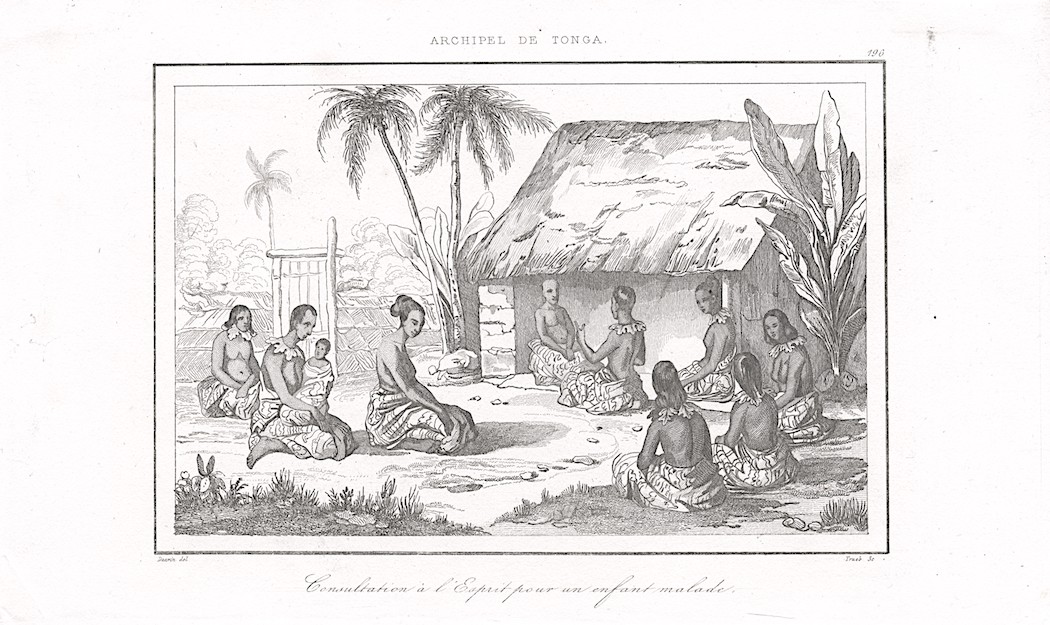 ARCHIPEL DE TONGA.
196
Danvin del
Traeb Sc
Consultation à l'Esprit pour un enfant malade.